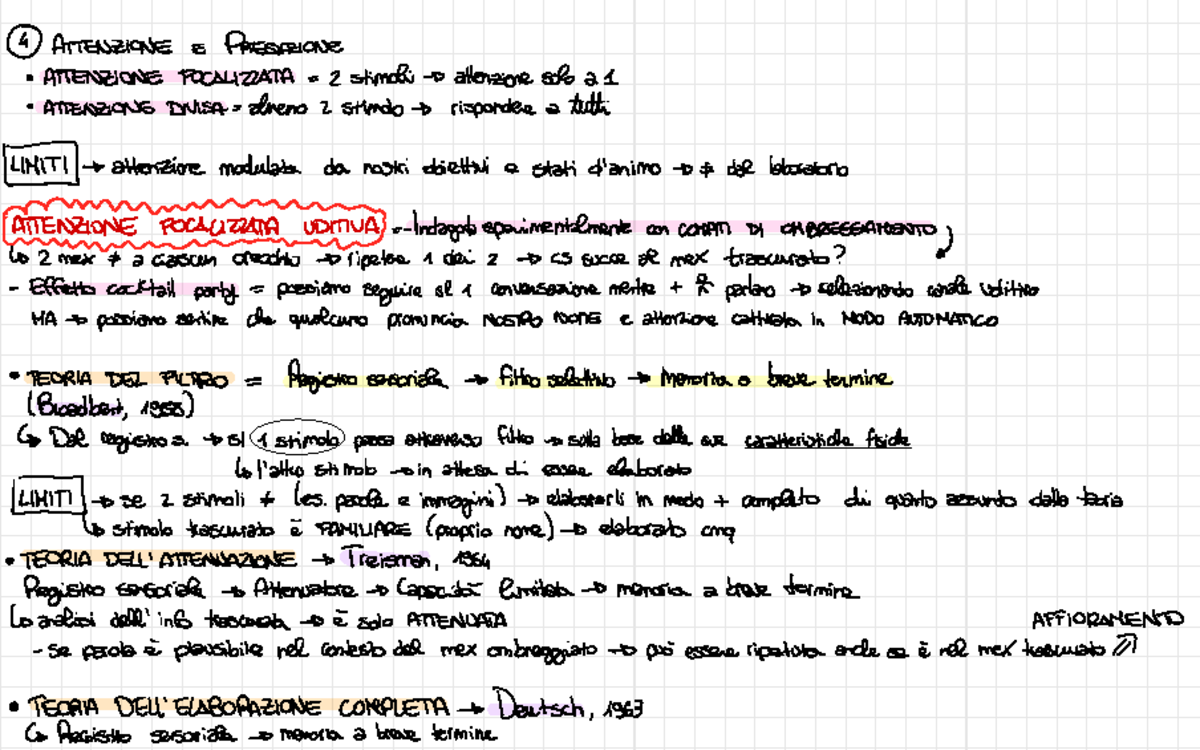 ④ ATTENZIONE E PERCEZIONE
• ATTENZIONE FOCALIZZATA = 2 stimoli → attenzione solo a 1
• ATTENZIONE DIVISA = almeno 2 stimolo → rispondere a tutti
LIMITI → attenzione modulata da nostri obiettivi e stati d'animo → ≠ dal laboratorio
ATTENZIONE FOCALIZZATA UDITIVA → Indagata sperimentalmente con COMPITI DI OMBREGGIAMENTO
↳ 2 mex ≠ a ciascun orecchio → ripetere 1 dei 2 → cs succe al mex trascurato?
- Effetto cocktail party = possiamo seguire sl 1 conversazione mentre + parlano → selezionando canale uditivo
MA → possiamo sentire che qualcuno pronuncia NOSTRO NOME e attenzione catturata in MODO AUTOMATICO
• TEORIA DEL FILTRO = Registro sensoriale → filtro selettivo → memoria a breve termine
(Broadbent, 1958)
↳ Dal registro → sl 1 stimolo passa attraverso filtro → sulla base delle sue caratteristiche fisiche
↳ l'altro stimolo → in attesa di essere elaborato
LIMITI → se 2 stimoli ≠ (es. parole e immagini) → elaborarli in modo + completo di quanto assunto dalla teoria
↳ stimolo trascurato è FAMILIARE (proprio nome) → elaborato cmq
• TEORIA DELL'ATTENUAZIONE → Treisman, 1964
Registro sensoriale → Attenuatore → Capacità limitata → memoria a breve termine
↳ analisi dell'info trascurata → è solo ATTENUATA
AFFIORAMENTO
- Se parola è plausibile nel contesto del mex ombreggiato → può essere ripetuta anche se è nel mex trascurato ⇗
• TEORIA DELL'ELABORAZIONE COMPLETA → Deutsch, 1963
↳ Registro sensoriale → memoria a breve termine